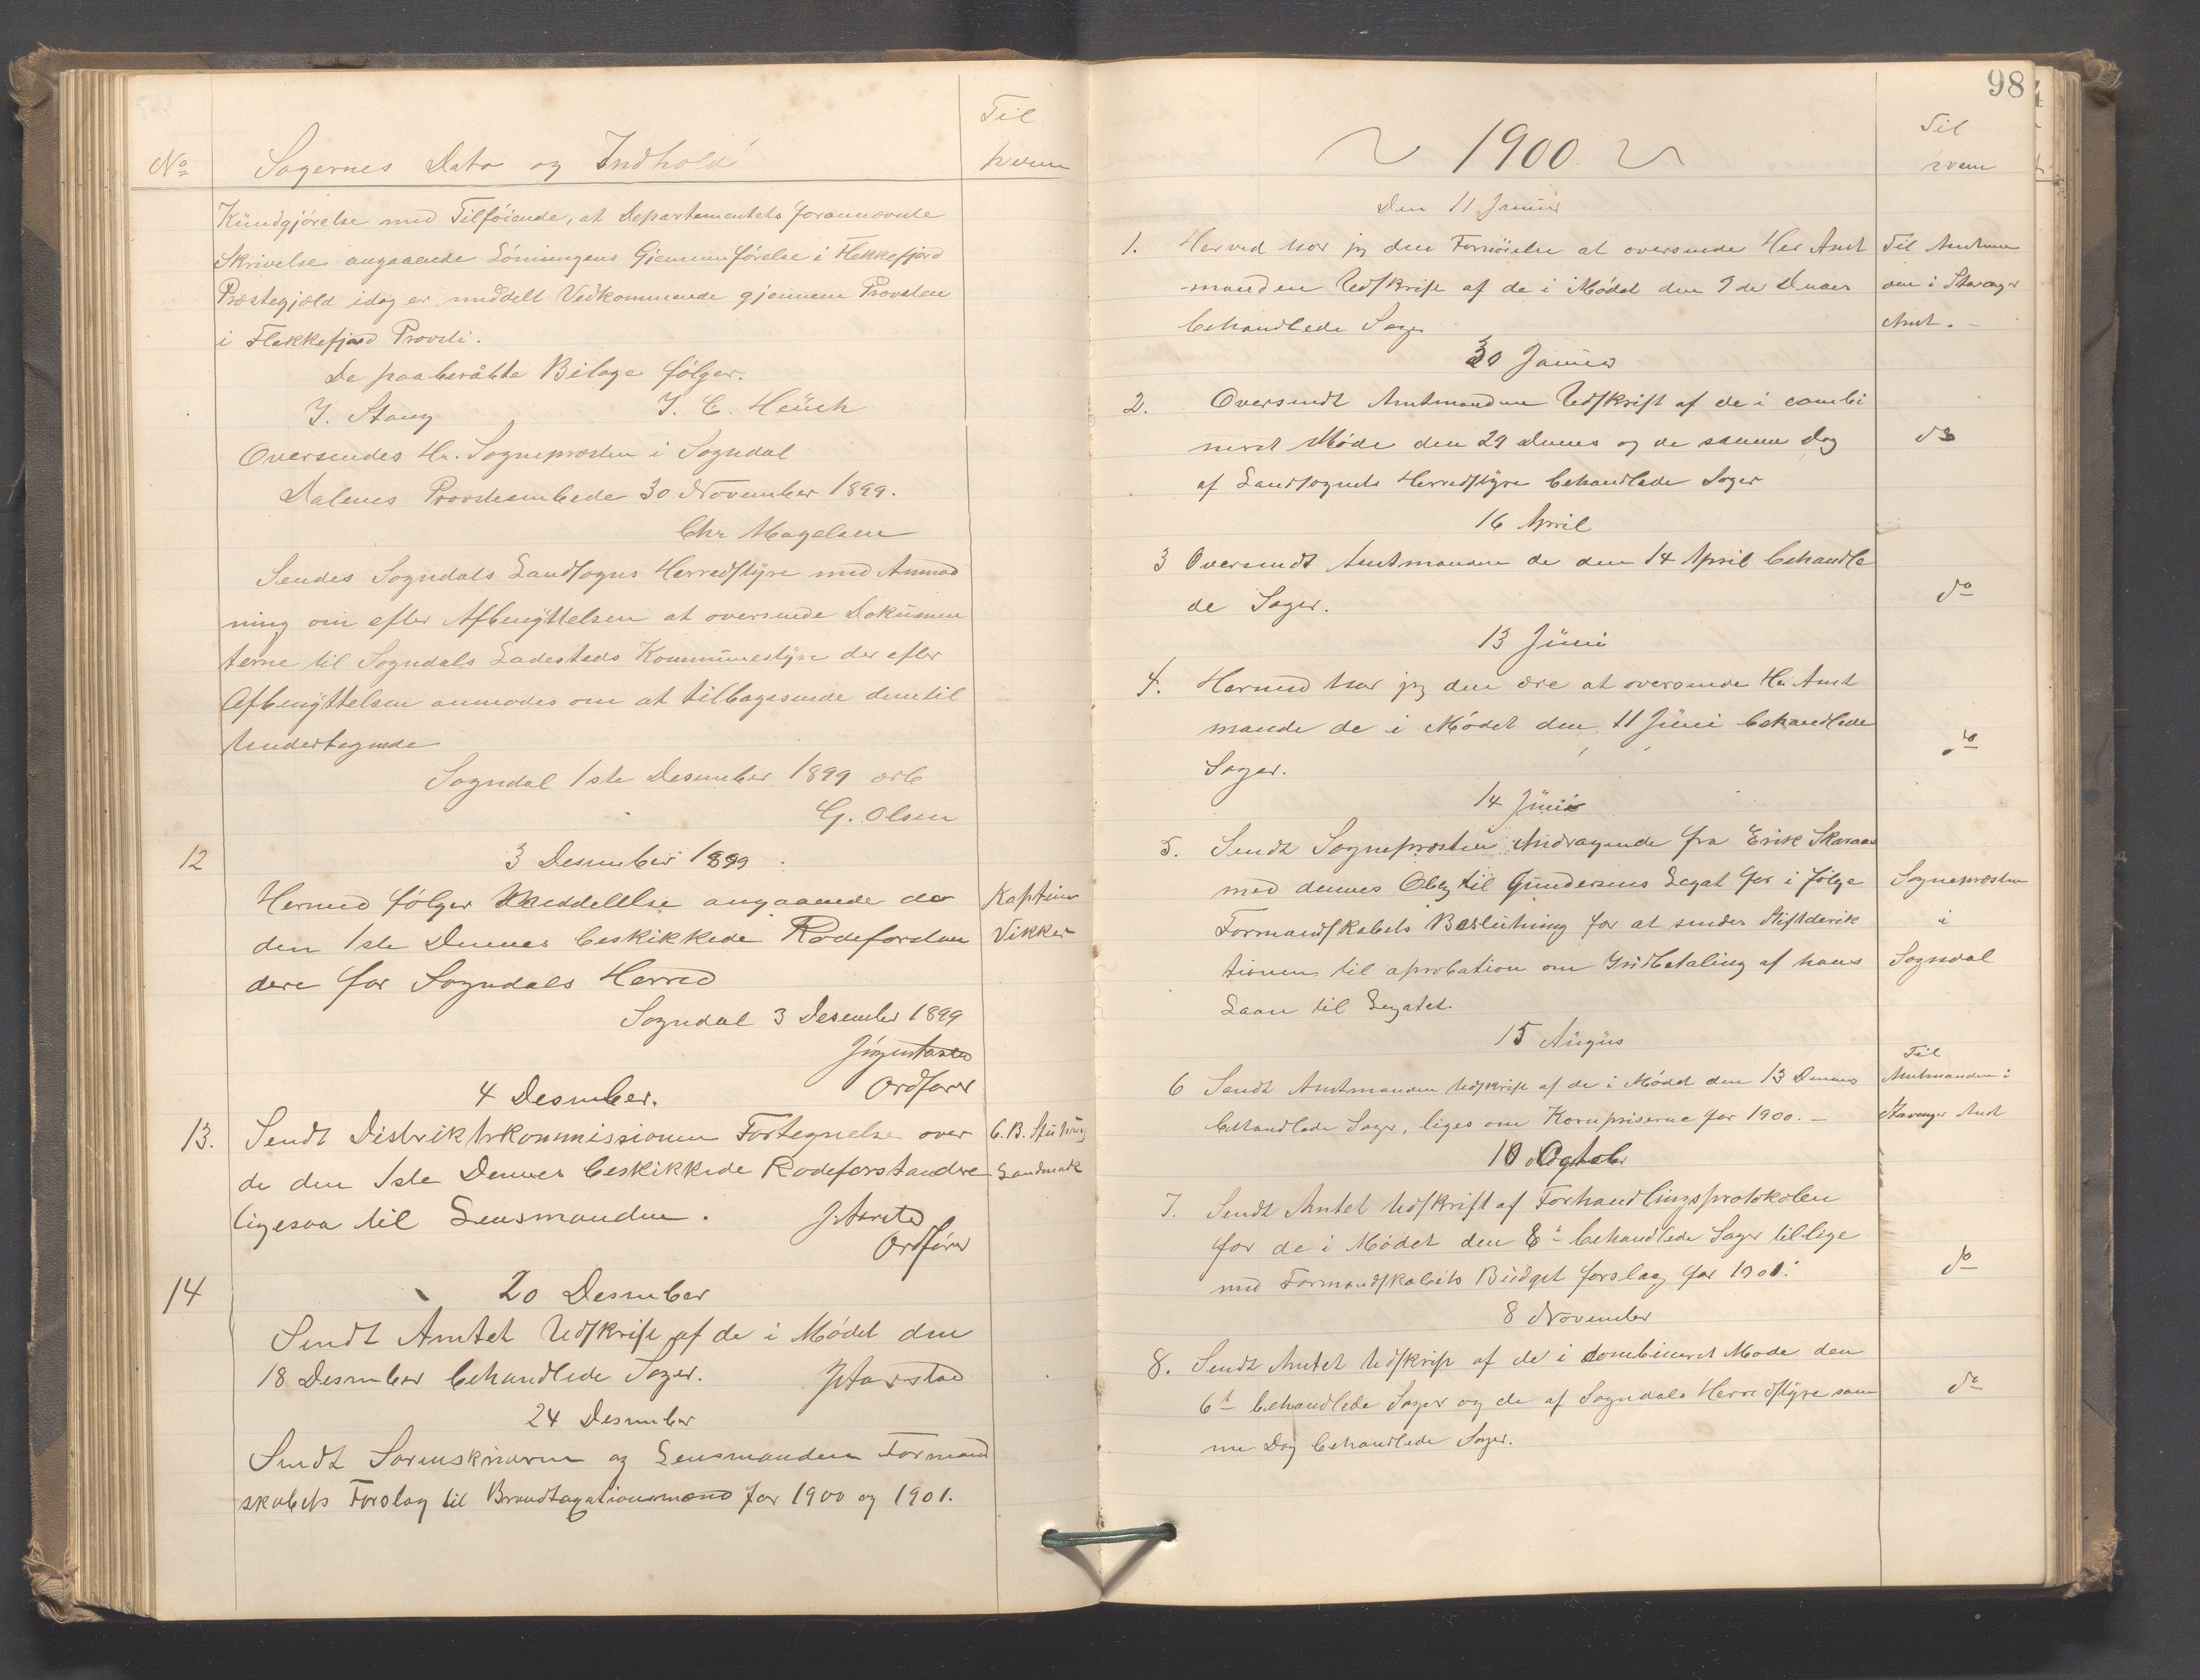 Til
No Sagernes Dato og Indhold hvem
Kundgjørelse med Tilføiende, at Departementets forannævnte
Skrivelse angaaende Lønningens Gjennemførelse i Flekkefjord
Præstegjæld idag er meddelt Vedkommende gjennem Provsten
i Flekkefjord Provsti.
De paaberåbte Bilage følger.
J. Stang J. C. Heuch
Oversendes Hr. Sognepræsten i Sogndal
Dalenes Provsteembede 30 November 1899.
Chr Magelsen
Sendes Sogndals Landsogns Herredstyre med Anmod
ning om efter Afbenyttelsen at oversende Dokumen
terne til Sogndals Ladesteds Kommunestyre der efter
Afbenyttelsen anmodes om at tilbagesende dem til
Undertegnede
Sogndal 1ste Desember 1899 ærb
G. Olsen
12 3 Desember 1899
Hermed følger Meddellse angaaende de Kaptein
den 1ste Dennes beskikkede Rodeforstan Vikker
dere for Sogndals Herred
Sogndal 3 Desember 1899
Ordfører
4 Desember.
13. Sendt Distriktskommissionen Fortegnelse over C.B.
de den 1ste Dennes beskikkede Rodeforstandere Landmark
ligesaa til Lensmanden.
Ordfører
14 20 Desember
Sendt Amtet Udskrift af de i Mødet den
18 Desember behandlede Sager.
24 Desember
Sendt Sorenskriveren og Lensmanden Formand
skabets Forslag til Brandtaxationsmænd for 1900 og 1901.
98
1900 Til
hvem
Den 11 Januar
1. Herved har jeg den Fornøielse at oversende Her Amt Til Amtman
manden Udskrift af de i Mødet den 9de Dennes den i Stavanger
behandlede Sager Amt.
30 Januar
2. Oversendt Amtmanden Udskrift af de i combi
neret Møde den 29 Dennes og de samme Dag do
af Landsognets Herredstyre behandlede Sager
16 April
3 Oversendt Amtmanden de den 14 April behandle
de Sager. do
13 Juni
4. Hermed har jeg den ære at oversende Hr. Amt
mande de i Mødet den 11 Juni behandlede
Sager. do
14 Juni
5. Sendt Sognepræsten Andragende fra Erik Skaraas
med dennes Oblg til Gundersens Legat for i følge Sognepræsten
Formandskabets Beslutning for at sendes Stiftderik i
tionen til aprobation om Indbetaling af hans Sogndal
Laan til Legatet.
15 Augus
Til
6 Sendt Amtmanden Udskrift af de i Mødet den 13 Dennes Amtmanden i
behandlede Sager, liges om Kornpriserne for 1900. Stavanger Amt
10 Ogtober
7. Sendt Amtet Udskrift af Forhandlingsprotokolen
for de i Mødet den 8de behandlede Sager tillige
med Formandskabets Budget forslag for 1901. do
8 November
8. Sendt Amtet Udskrift af de i Combineret Møde den
6te behandlede Sager og de af Sogndals Herredstyre sam do
me Dag behandlede Sager.